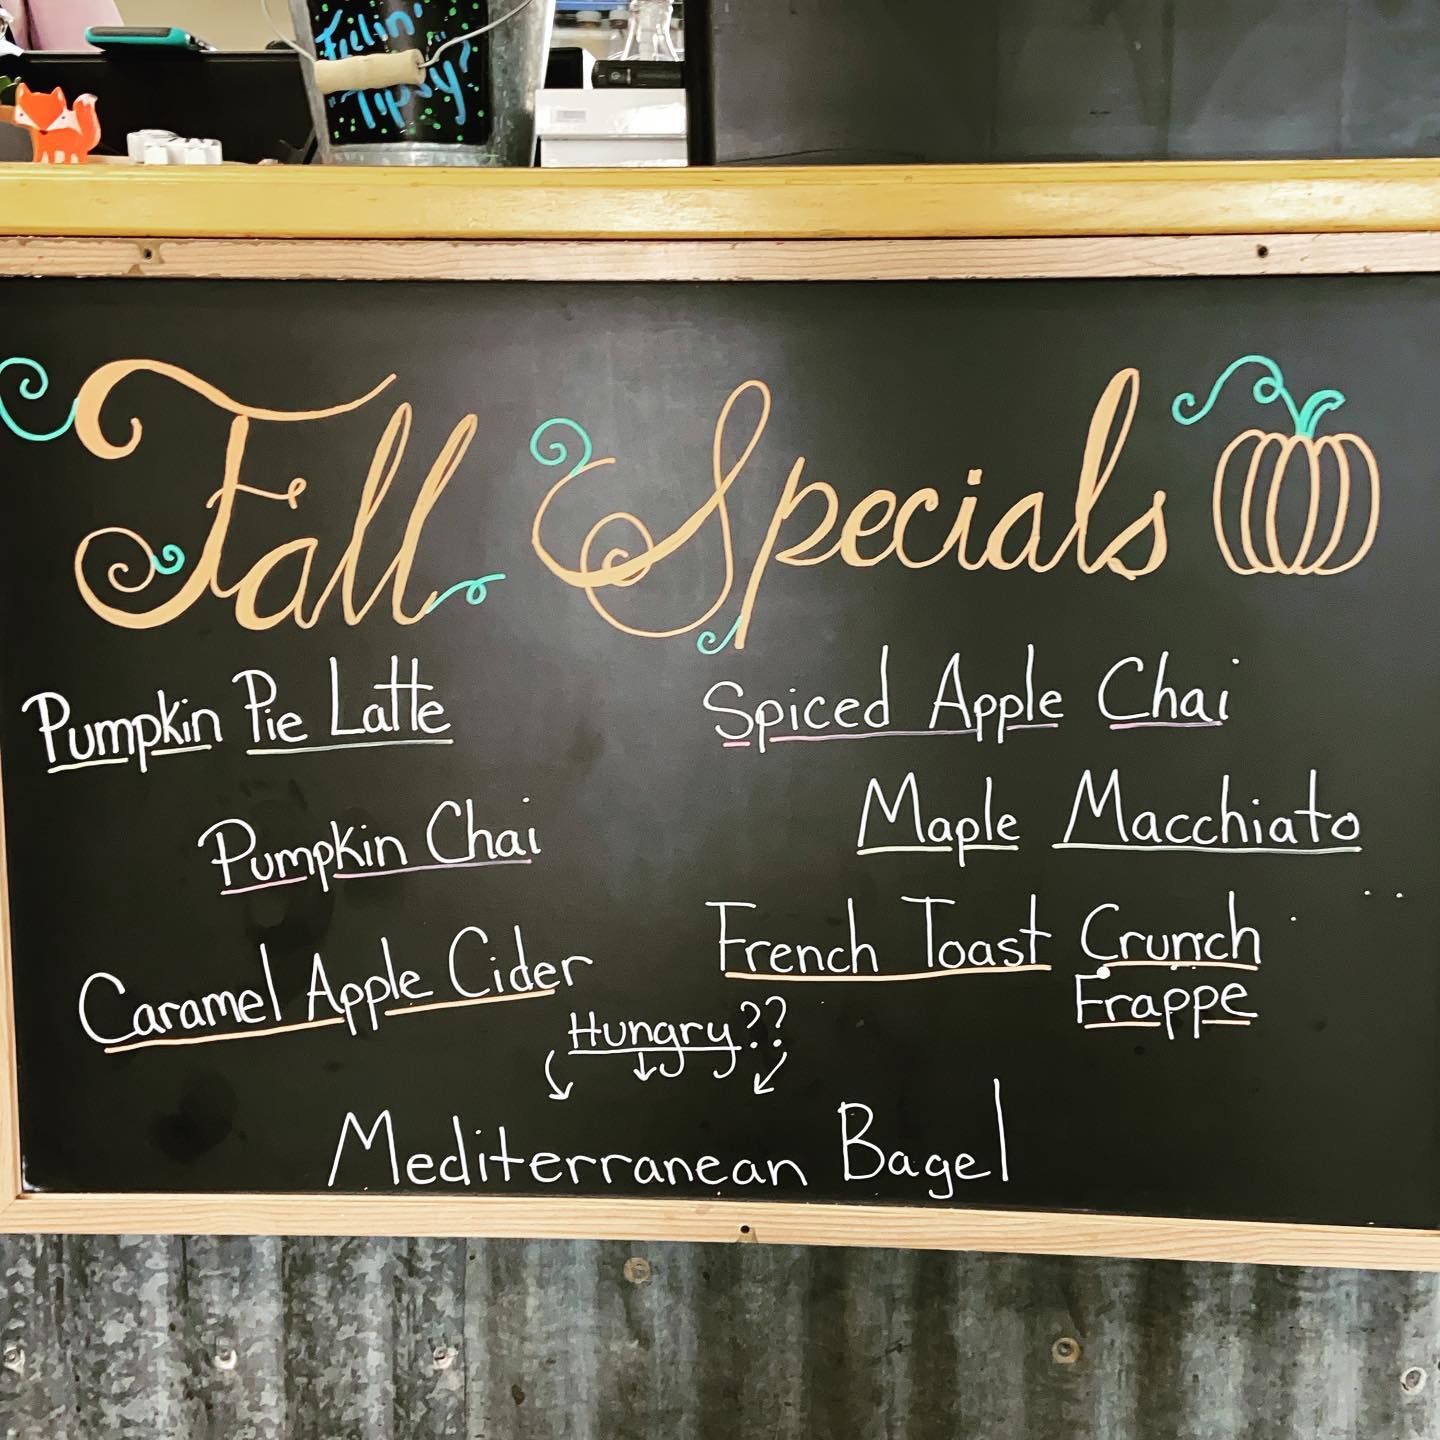 Feelin'
"Tipsy?
Fall Specials
Pumpkin Pie Latte
Pumpkin Chai
Caramel Apple Cider
Spiced Apple Chai
Maple Macchiato
French Toast Crunch
Frappe
Hungry??
Mediterranean Bagel